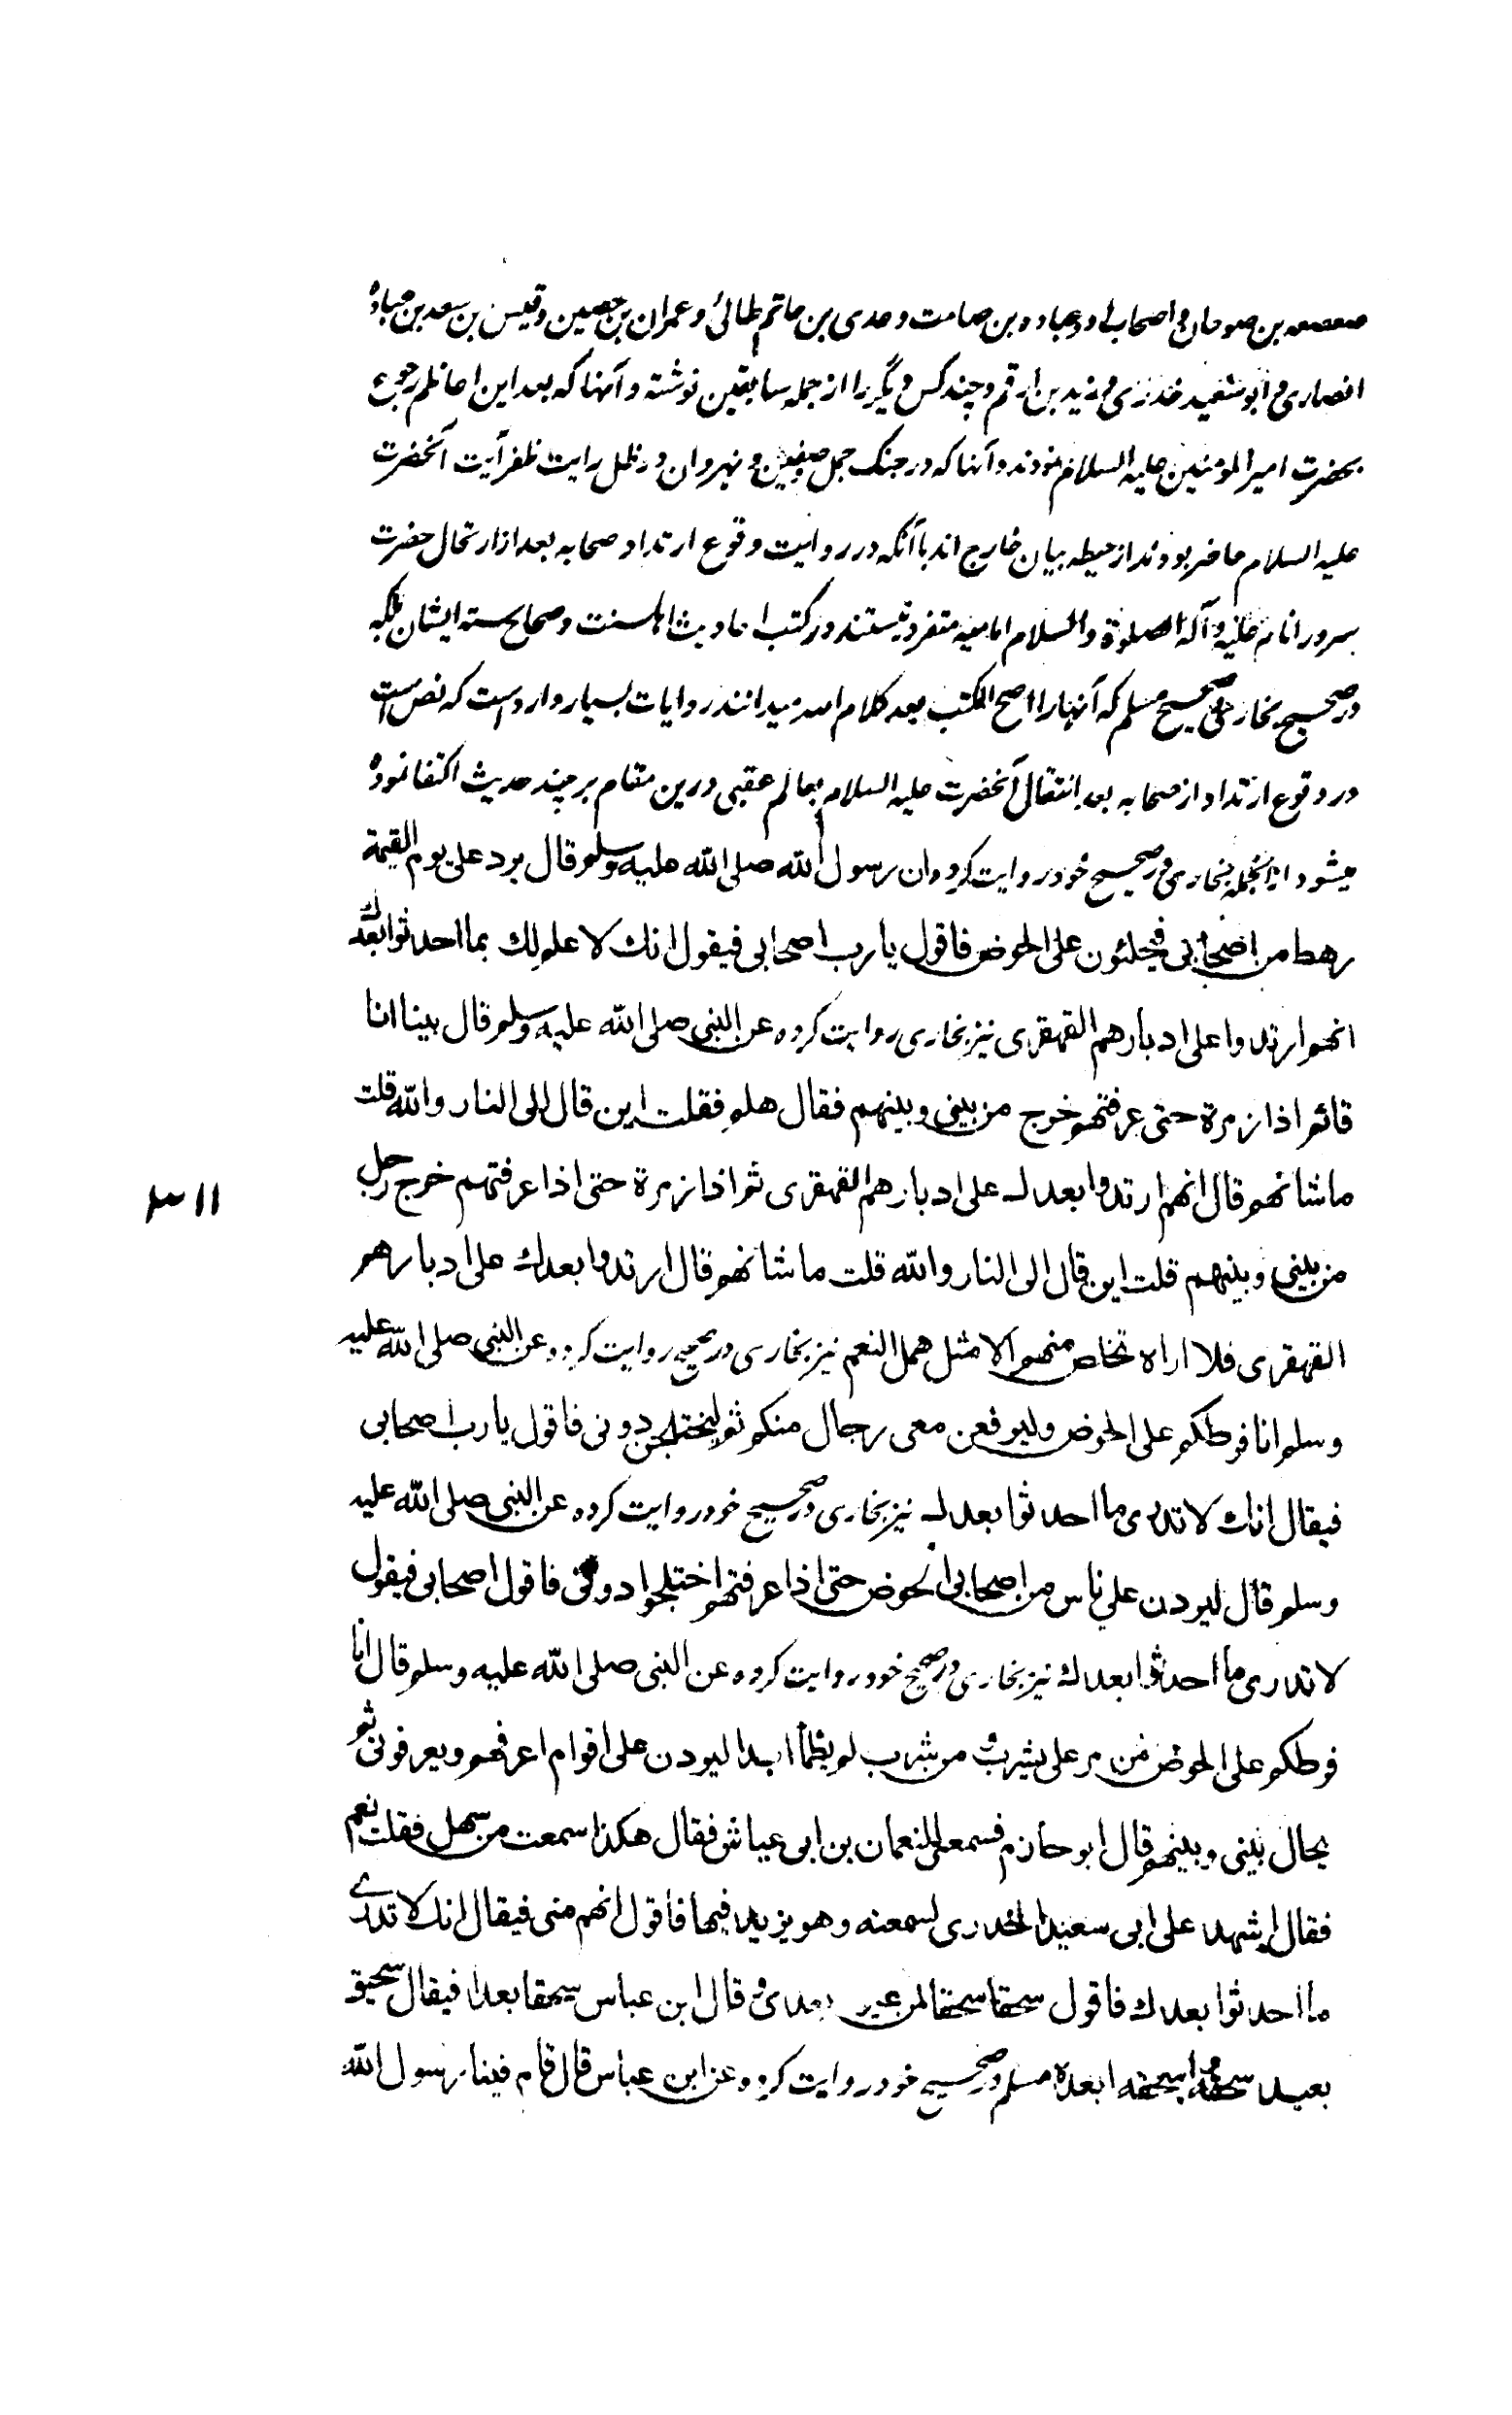 صعصعه بن صوحان و اصحاب او و عباده بن صامت و عدی بن حاتم طائی و عمران بن حصین و قیس بن سعد بن عباده
انصاری و ابو سعید خدری و زید بن ارقم و چند کس دیگر را از جمله سابقین نوشته و آنها که بعد این اعاظم رجوع
بحضرت امیر المومنین علیه السلام نمودند و آنها که در جنگ جمل و صفین و نهروان در ظل رایت ظفر آیت آنحضرت
علیه السلام حاضر بودند از حیطه بیان خارج اند باآنکه در روایت وقوع ارتداد صحابه بعد از ارتحال حضرت
سرور انام علیه و آله الصلوة والسلام امامیه متفرد نیستند در کتب احادیث اهلسنت و صحاح سته ایشان بلکه
در صحیح بخاری و صحیح مسلم که آنها را اصح الکتب بعد کلام الله میدانند روایات بسیار وارد است که نص است
در وقوع ارتداد از صحابه بعد انتقال آنحضرت علیه السلام بعالم عقبی درین مقام بر چند حدیث اکتفا نموده
میشود از انجمله بخاری در صحیح خود روایت کرده ان رسول الله صلی الله علیه وسلم قال یرد علی یوم القیمة
رهط من اصحابی فیجلئون علی الحوض فاقول یا رب اصحابی فیقول انك لا علم لك بما احدثوا بعدك
انهم ارتدوا علی ادبارهم القهقری نیز بخاری روایت کرده عن النبی صلی الله علیه وسلم قال بینا انا
قائم اذا زمرة حتی عرفتهم خرج من بینی وبینهم فقال هلم فقلت این قال الی النار والله قلت
ماشانهم قال انهم ارتدوا بعدك علی ادبارهم القهقری ثم اذا زمرة حتی اذا عرفتهم خرج رجل
من بینی وبینهم قلت این قال الی النار والله قلت ماشانهم قال ارتدوا بعدك علی ادبارهم
القهقری فلا اراه تخلص منهم الا مثل همل النعم نیز بخاری در صحیح روایت کرده عن النبی صلی الله علیه
وسلم انا فرطکم علی الحوض ولیرفعن معی رجال منکم ثم لیختلجن دونی فاقول یا رب اصحابی
فیقال انك لا تدری ما احدثوا بعدك نیز بخاری در صحیح خود روایت کرده عن النبی صلی الله علیه
وسلم قال لیردن علی ناس من اصحابی الحوض حتی اذا عرفتهم اختلجوا دونی فاقول اصحابی فیقول
لا تدری ما احدثوا بعدك نیز بخاری در صحیح خود روایت کرده عن النبی صلی الله علیه وسلم قال انا
فرطکم علی الحوض فمن مر علی یشرب و من شرب لم یظمأ ابدا لیردن علی اقوام اعرفهم ویعرفونی ثم
یحال بینی وبینهم قال ابو حازم فسمعنی النعمان بن ابی عیاش فقال هکذا سمعت من سهل فقلت نعم
فقال اشهد علی ابی سعید الخدری لسمعته وهو یزید فیها فاقول انهم منی فیقال انك لا تدری
ما احدثوا بعدك فاقول سحقا سحقا لمن غیر بعدی و قال ابن عباس سحقا بعدا فیقال سحیق
بعید سحقه واسحقه ابعده مسلم در صحیح خود روایت کرده عن ابن عباس قال قام فینا رسول الله
۳۱۱